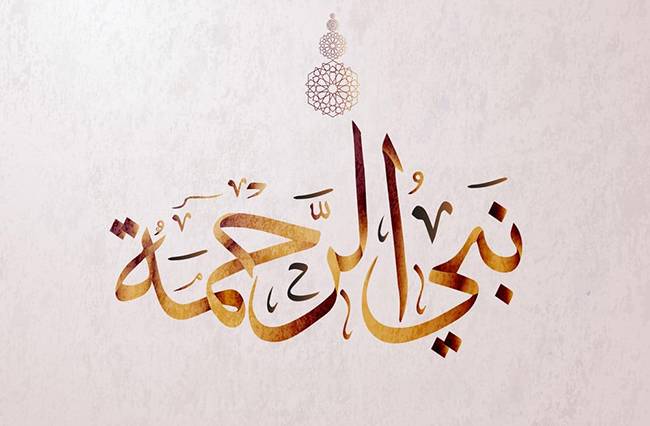 نَبيُّ الرَّحْمَةُ